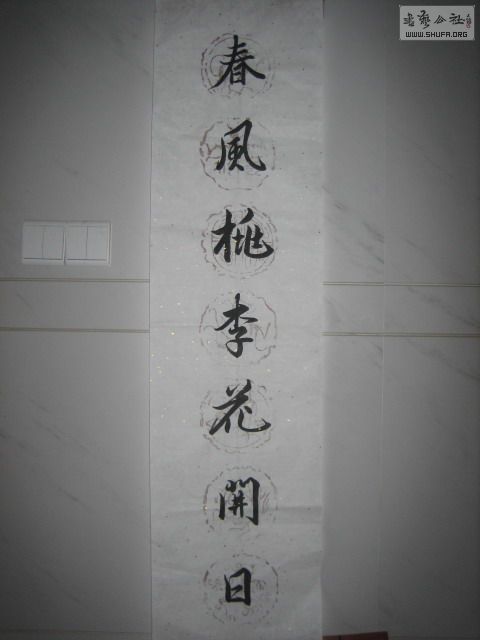 春風桃李花開日
書藝公社
WWW.SHUFA.ORG